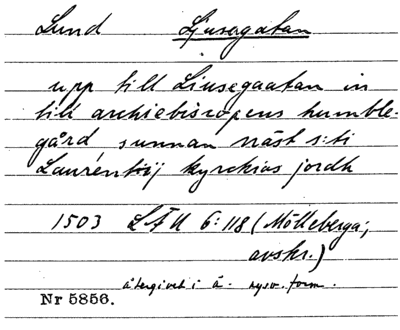 Lund Ljusegatan
upp till Liusegaatan in
till archiebiscopens humble-
gård sunnan näst s:ti
Laurentij kyrckias jordh
1503 LÄU 6:118 (Mölleberga;
avskr.)
återgivet i ä. nysv. form.
Nr 5856.